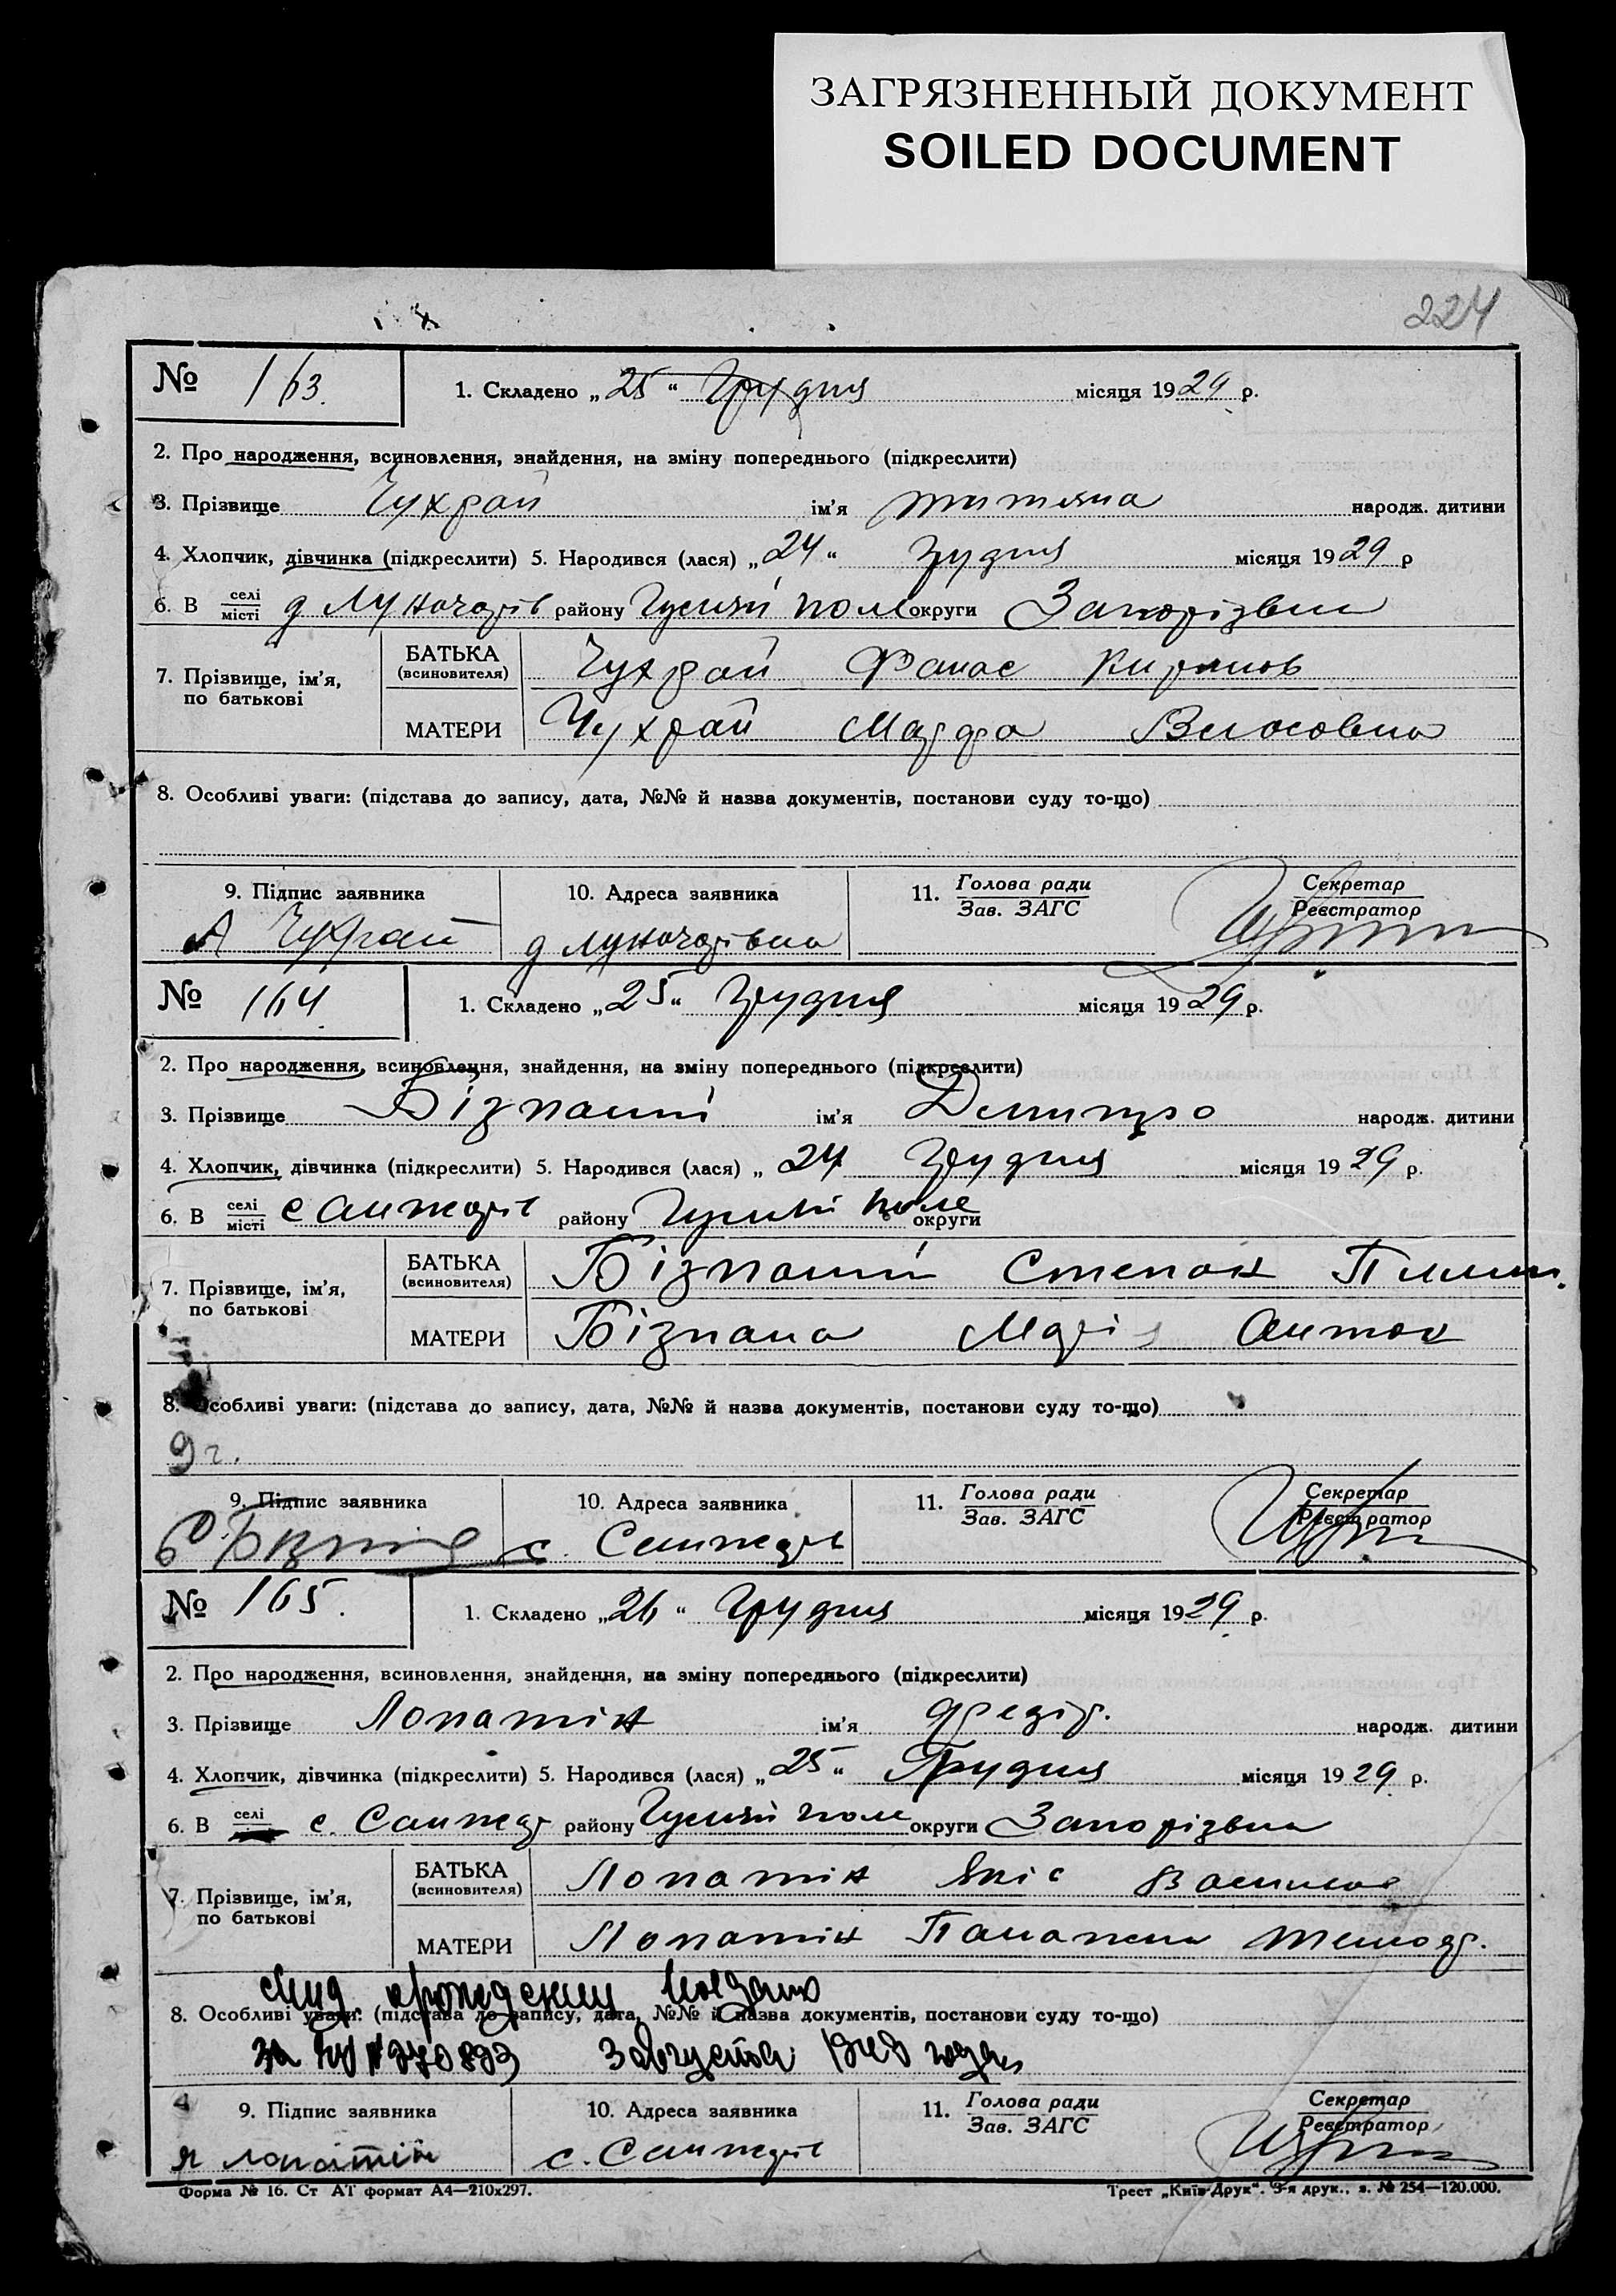 ЗАГРЯЗНЕННЫЙ ДОКУМЕНТ
SOILED DOCUMENT
224
№ 163. 1. Складено „25“ Грудня місяця 1929 р.
2. Про народження, всиновлення, знайдення, на зміну попереднього (підкреслити)
3. Прізвище Чухрай ім'я Титяна народж. дитини
4. Хлопчик, дівчинка (підкреслити) 5. Народився (лася) „24“ грудня місяця 1929 р
6. В селі місті району Гуляй поле округи Запорізька
7. Прізвище, ім'я, по батькові
БАТЬКА (всиновителя) Чухрай Фанас
МАТЕРИ Чухрай Марфа Власовна
8. Особливі уваги: (підстава до запису, дата, №№ й назва документів, постанови суду то-що)
9. Підпис заявника 10. Адреса заявника 11. Голова ради Зав. ЗАГС Секретар Реєстратор
А Чухрай
№ 164. 1. Складено „25“ грудня місяця 1929 р.
2. Про народження, всиновлення, знайдення, на зміну попереднього (підкреслити)
3. Прізвище Бізпалий ім'я Дмитро народж. дитини
4. Хлопчик, дівчинка (підкреслити) 5. Народився (лася) „ 24 Грудня місяця 1929 р.
6. В селі місті с району Гуляй поле округи
7. Прізвище, ім'я, по батькові
БАТЬКА (всиновителя) Бізпалий Степан
МАТЕРИ Бізпала Марія Антон
8. Особливі уваги: (підстава до запису, дата, №№ й назва документів, постанови суду то-що)
9 г.
9. Підпис заявника 10. Адреса заявника 11. Голова ради Зав. ЗАГС Секретар Реєстратор
с.
№ 165. 1. Складено „26“ Грудня місяця 1929 р.
2. Про народження, всиновлення, знайдення, на зміну попереднього (підкреслити)
3. Прізвище Лопатін ім'я Федір. народж. дитини
4. Хлопчик, дівчинка (підкреслити) 5. Народився (лася) „25“ Грудня місяця 1929 р.
6. В селі с. району Гуляй поле округи Запорізька
7. Прізвище, ім'я, по батькові
БАТЬКА (всиновителя) Лопатін Якіс
МАТЕРИ Лопатін
8. Особливі уваги: (підстава до запису, дата, №№ й назва документів, постанови суду то-що)
3 августа
9. Підпис заявника 10. Адреса заявника 11. Голова ради Зав. ЗАГС Секретар Реєстратор
Я Лопатін с.
Форма № 16. Ст АТ формат А4—210х297. Трест „Київ-Друк“. 3-я друк., з. № 254—120.000.